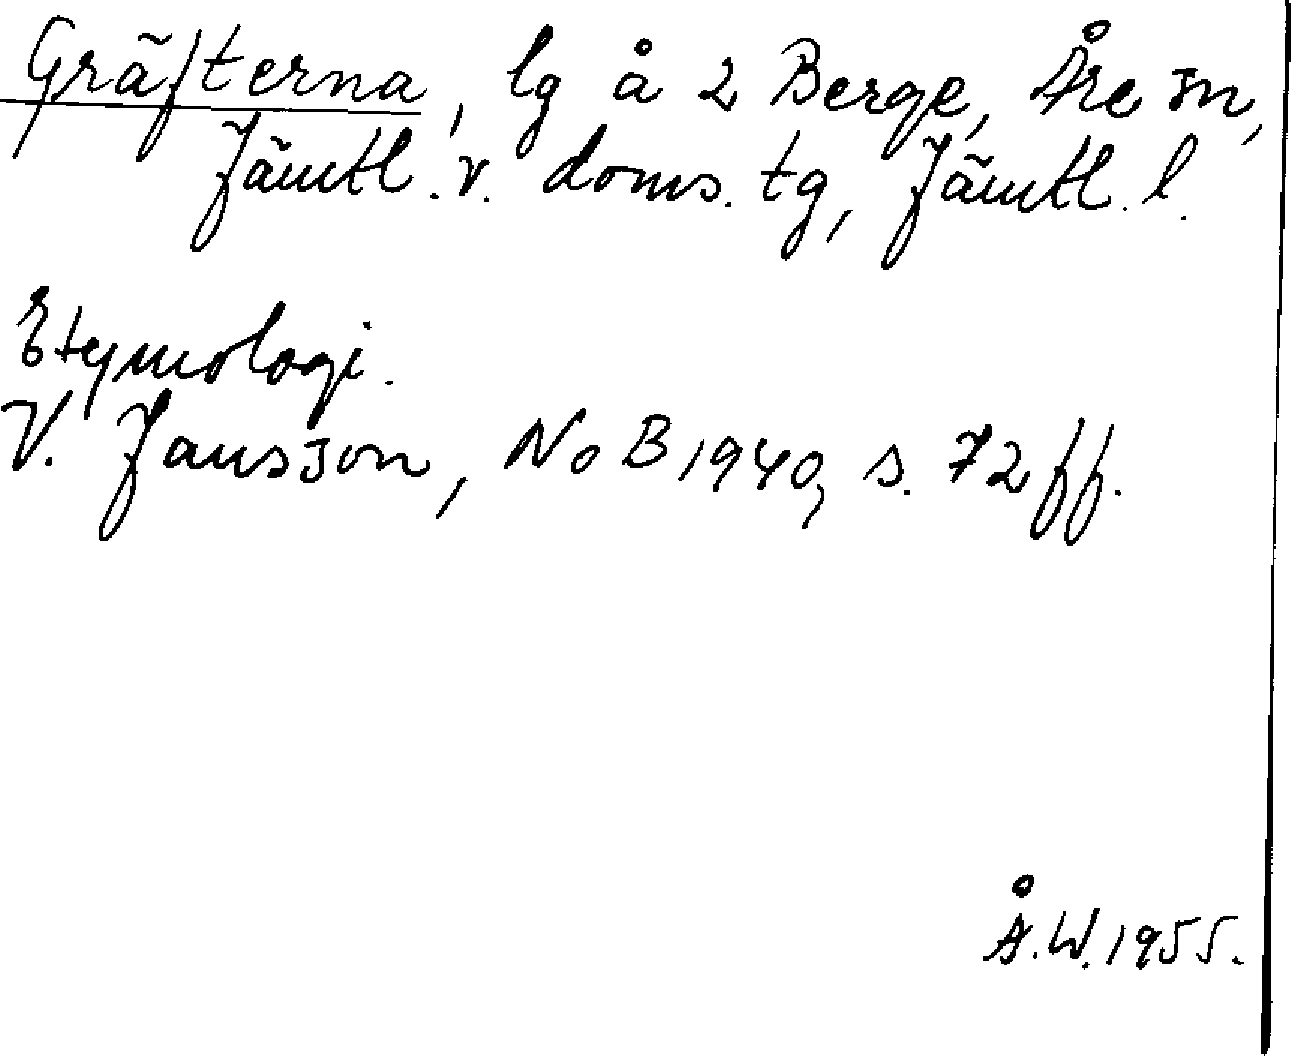 Gräfterna, lg å 2 Berge, Åre sn,
Jämtl. v. doms. tg, Jämtl. l.
Etymologi.
V. Jansson, NoB 1940, s. 72 ff.
Å.W. 1955.